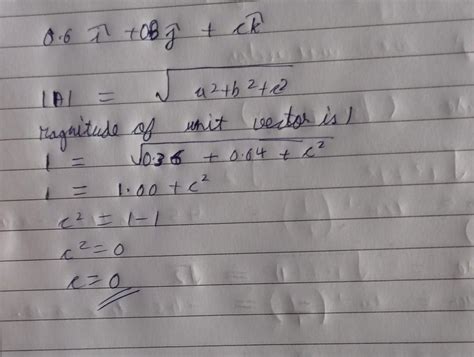 0.6 i⃗ + 08 j⃗ + ck⃗
|A| = √a²+b²+c²
magnitude of unit vector is 1
1 = √0.36 + 0.64 + c²
1 = 1.00 + c²
c² = 1-1
c² = 0
c = 0